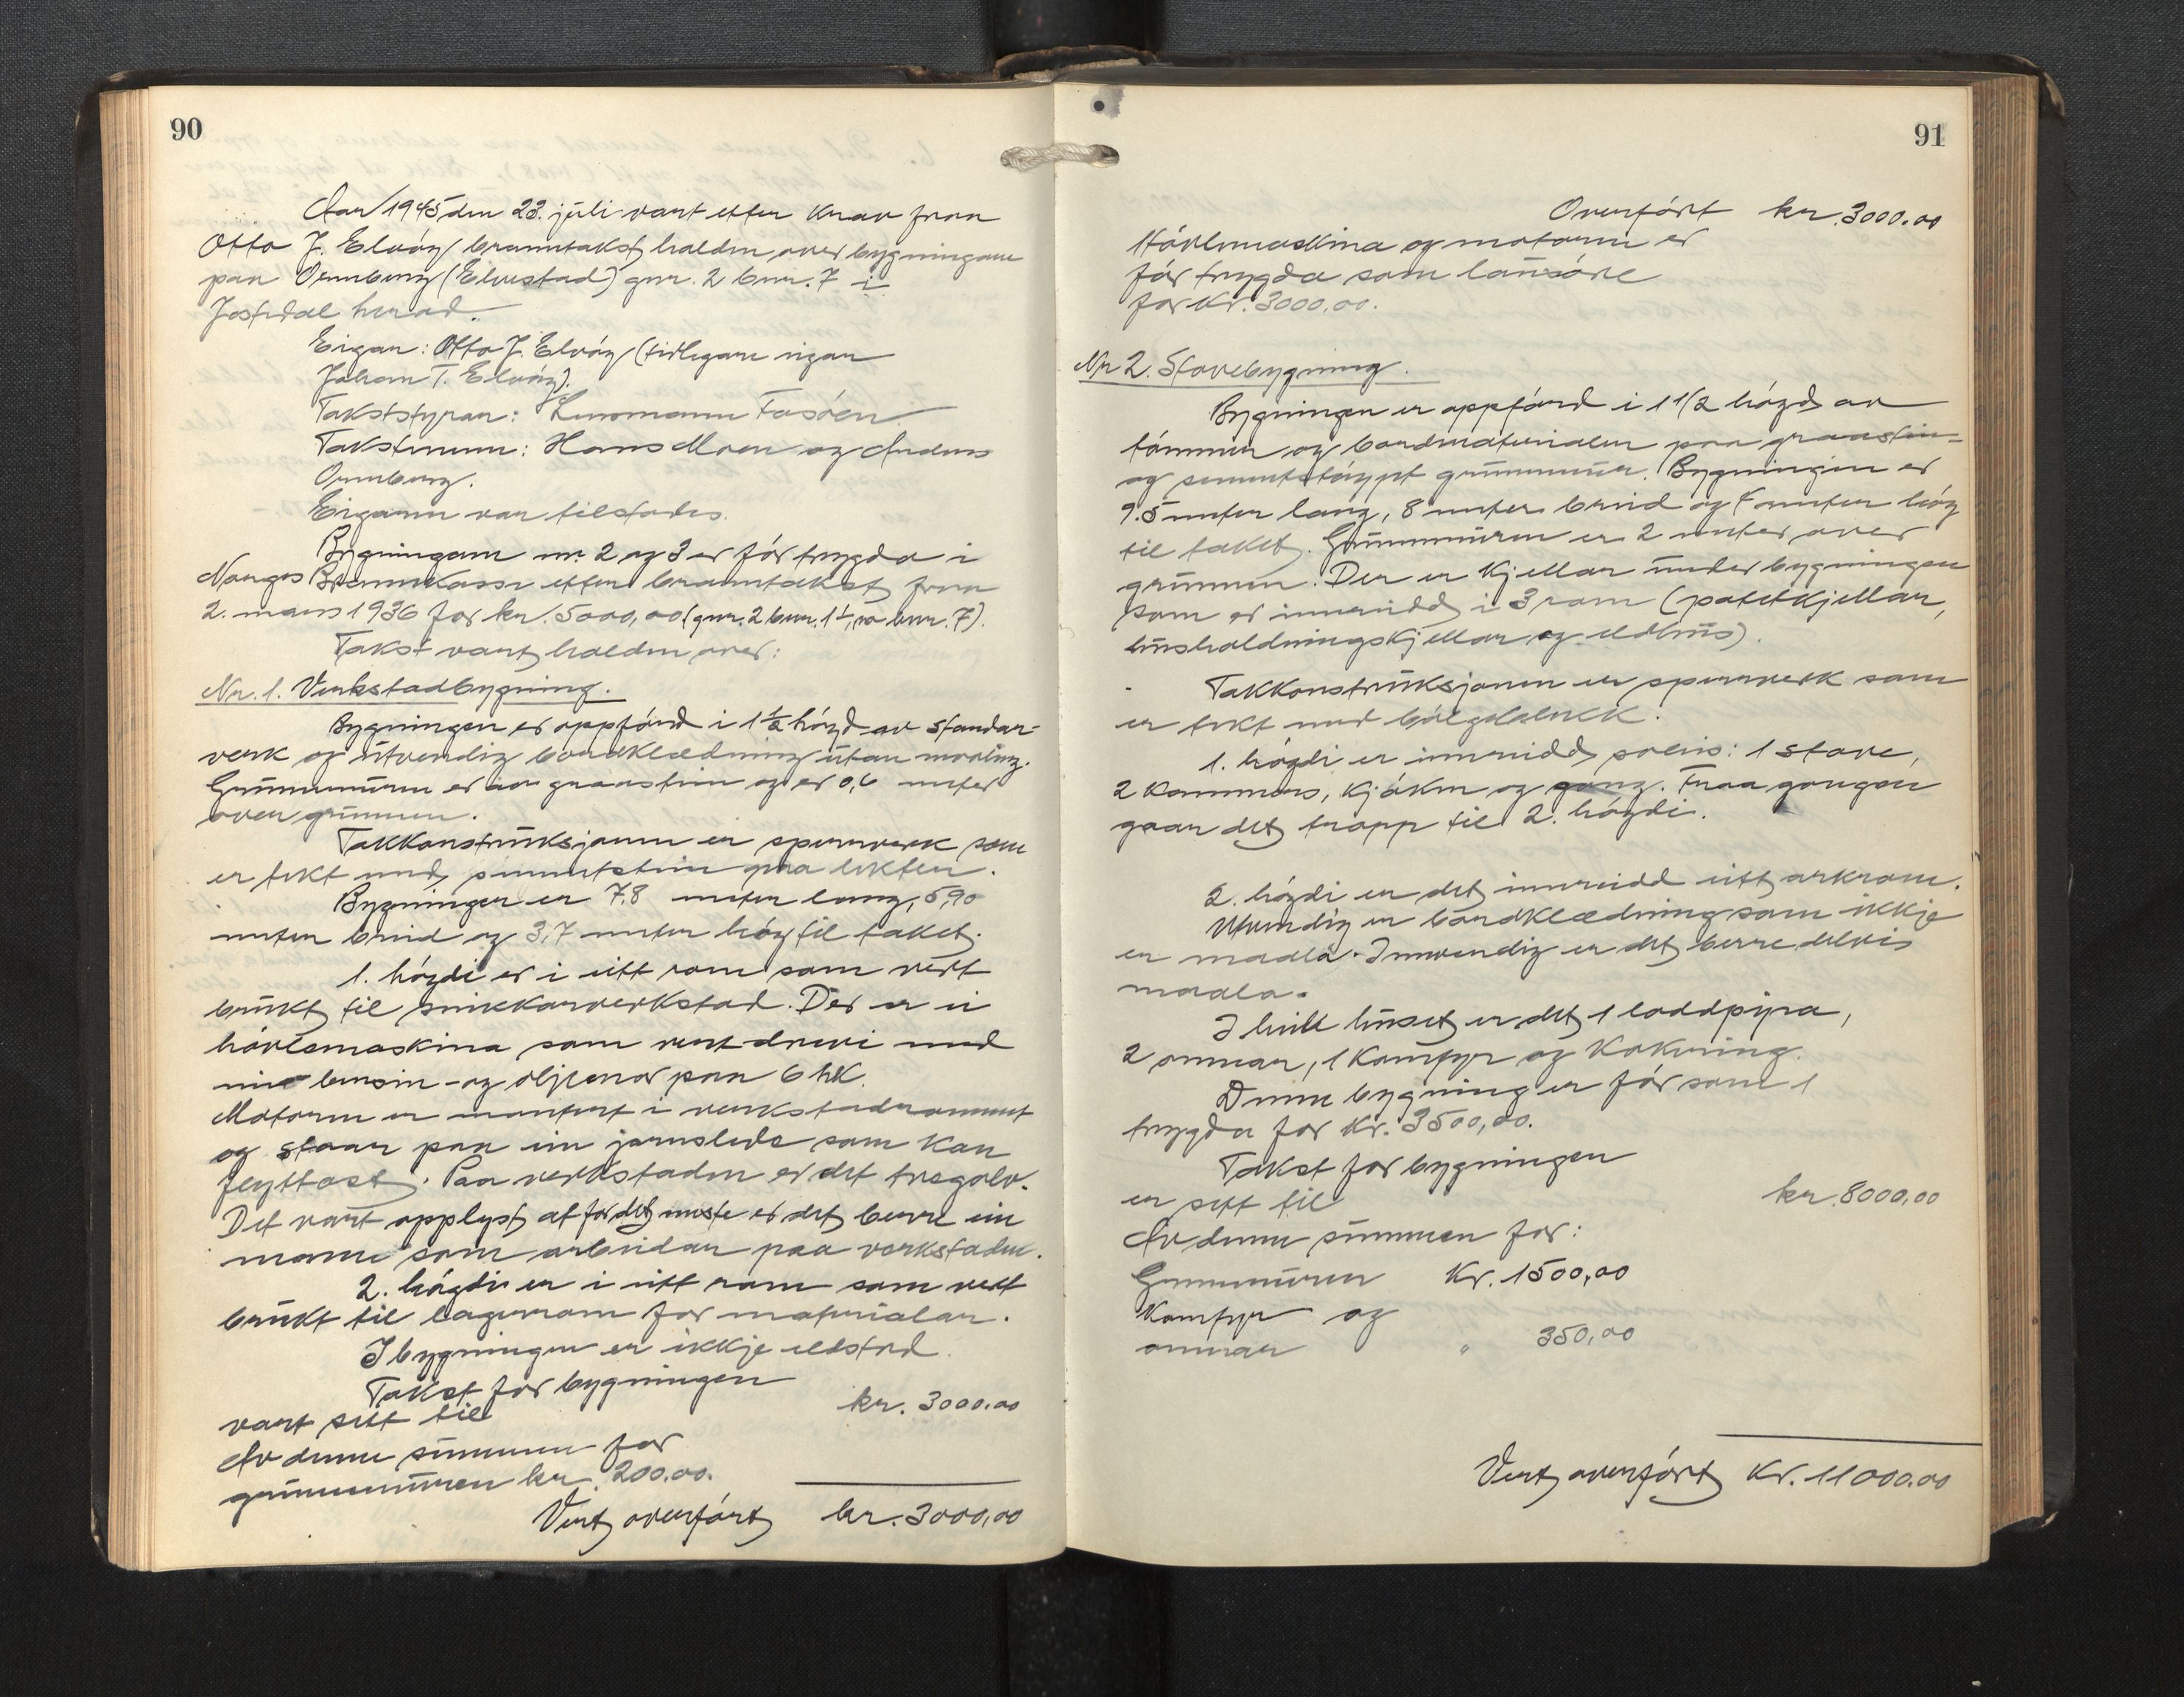 90
Aar 1945 den 23. juli vart etter krav fraa
Otto J. Elvøy branntakst halden over bygningane
paa Ormberg (Elvestad) gnr. 2 bnr. 7 i
Jostedal herad.
Eigar: Otto J. Elvøy (tidlegare eigar
Johan T. Elvøy).
Takststyrar: Lensmann Fasøen
Takstmenn: Hans Moen og Anders
Ormberg.
Eigaren var tilstades.
Bygningane nr. 2 og 3 er før trygda i
Norges Brannkasse etter branntakst fraa
2. mars 1936 for kr. 5000,00 (gnr. 2 bnr. 1, no bnr. 7).
Takst vart halden over:
Nr. 1. Verkstadbygning.
Bygningen er oppførd i 1½ høgd av standar-
verk og utvendig bordklædning utan maaling.
Grunnmuren er av graastein og er 0,6 meter
over grunnen.
Takkonstruksjonen er sperrverk som
er tekt med sementstein paa lekter.
Bygningen er 7.8 meter lang, 5,90
meter breid og 3,7 meter høg til taket.
1. høgdi er i eitt rom som vert
brukt til snikkarverkstad. Der er ei
høvlemaskina som vert drevi med
ein bensin- og oljemotor paa 6 hk.
Motoren er montert i verkstadrommet
og staar paa ein jarnslede som kan
flyttast. Paa verkstaden er det tregolv.
Det vart opplyst at for det meste er det berre ein
mann som arbeidar paa verkstaden.
2. høgdi er i eitt rom som vert
brukt til lagerrom for materialar.
I bygningen er ikkje eldstad.
Takst for bygningen
vart sett til kr. 3000.00
Av denne summen for
grunnmuren kr. 200.00.
Vert overført kr. 3000,00
91
Overført kr. 3000.00
Høvlemaskina og motoren er
før trygda som lausøre
for kr. 3000,00.
Nr 2. Stovebygning.
Bygningen er oppførd i 1 1/2 høgd av
tømmer og bordmaterialer paa graastein-
og sementstøypt grunnmur. Bygningen er
9.5 meter lang, 8 meter breid og 5 meter høg
til taket. Grunnmuren er 2 meter over
grunnen. Der er kjellar under bygningen
som er innreidd i 3 rom (potetkjellar,
husholdningskjellar og eldhus).
Takkonstruksjonen er sperrverk som
er tekt med bølgeblekk.
1. høgdi er innreidd soleis: 1 stove,
2 kammers, kjøken og gang. Fraa gangen
gaar det trapp til 2. høgdi.
2. høgdi er det innreidd eitt arkrom.
Utvendig er bordklædning som ikkje
er maala. Innvendig er det berre delvis
maala.
I heile huset er det 1 loddpipa,
2 omnar, 1 komfyr og kokering.
Denne bygning er før som 1
trygda for kr. 3500,00.
Takst for bygningen
er sett til kr. 8000,00
Av denne summen for:
Grunnmuren Kr. 1500,00
Komfyr og
omnar " 350,00
Vert overført Kr. 11000.00